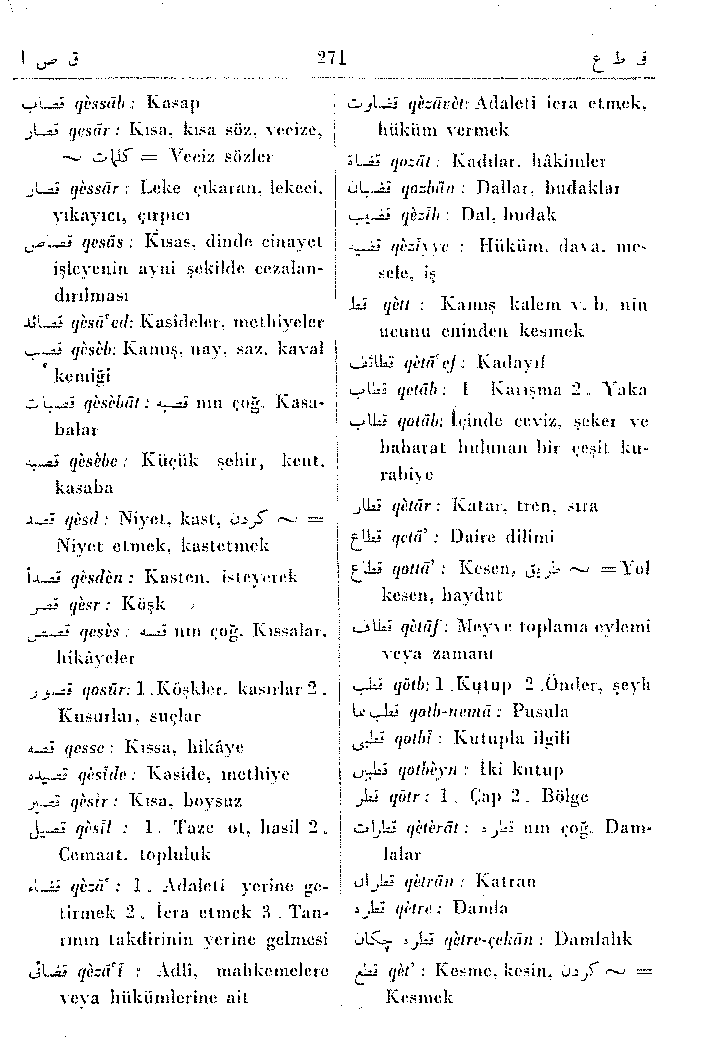 ق ص ا 271 ق ط ع
قصّاب qèssāb : Kasap
قصار qesār : Kısa, kısa söz, vecize,
~ كلمات = Veciz sözler
قصّار qèssār : Leke çıkaran, lekeci,
yıkayıcı, çırpıcı
قصاص qesās : Kısas, dinde cinayet
işleyenin ayni şekilde cezalan-
dırılması
قصائد qèsā'ed: Kasideler, methiyeler
قصب qèsèb: Kamış, nay, saz, kaval
kemiği
قصبات qèsèbāt : قصبه nın çoğ. Kasa-
balar
قصبه qèsèbe : Küçük şehir, kent,
kasaba
قصد qèsd : Niyet, kast, ~ كردن =
Niyet etmek, kastetmek
قصداً qèsdèn : Kasten, isteyerek
قصر qèsr : Köşk
قصص qesès : قصه nın çoğ. Kıssalar,
hikâyeler
قصور qosūr: 1 .Köşkler, kasırlar 2 .
Kusurlar, suçlar
قصه qesse : Kıssa, hikâye
قصيده qèsīde : Kaside, methiye
قصير qèsīr : Kısa, boysuz
قصيل qèsīl : 1 . Taze ot, hasıl 2 .
Cemaat, topluluk
قضاء qèzā' : 1 . Adaleti yerine ge-
tirmek 2 . İcra etmek 3 . Tan-
rının takdirinin yerine gelmesi
قضائى qèzā'ī : Adlî, mahkemelere
veya hükümlerine ait
قضاوت qèzāvèt: Adaleti icra etmek,
hüküm vermek
قضاة qozāt : Kadılar, hâkimler
قضبان qozbān : Dallar, budaklar
قضيب qèzīb : Dal, budak
قضيه qèzīyye : Hüküm, dava, me-
sele, iş
قط qètt : Kamış kalem v. b. nin
ucunu eninden kesmek
قطائف qètā'ef : Kadayıf
قطاب qetāb : 1 Karışma 2 . Yaka
قطاب qotāb: İçinde ceviz, şeker ve
baharat bulunan bir çeşit ku-
rabiye
قطار qètār : Katar, tren, sıra
قطاع qetā' : Daire dilimi
قطاع qottā' : Kesen, طريق ~ =Yol
kesen, haydut
قطاف qètāf : Meyve toplama eylemi
veya zamanı
قطب qōtb: 1 .Kutup 2 .Önder, şeyh
قطب نما qotb-nemā : Pusula
قطبى qotbī : Kutupla ilgili
قطبين qotbèyn : İki kutup
قطر qōtr : 1 . Çap 2 . Bölge
قطرات qèterāt : قطره nın çoğ. Dam-
lalar
قطران qètrān : Katran
قطره qètre : Damla
قطره چكان qètre-çekān : Damlalık
قطع qèt' : Kesme, kesin, ~ كردن =
Kesmek